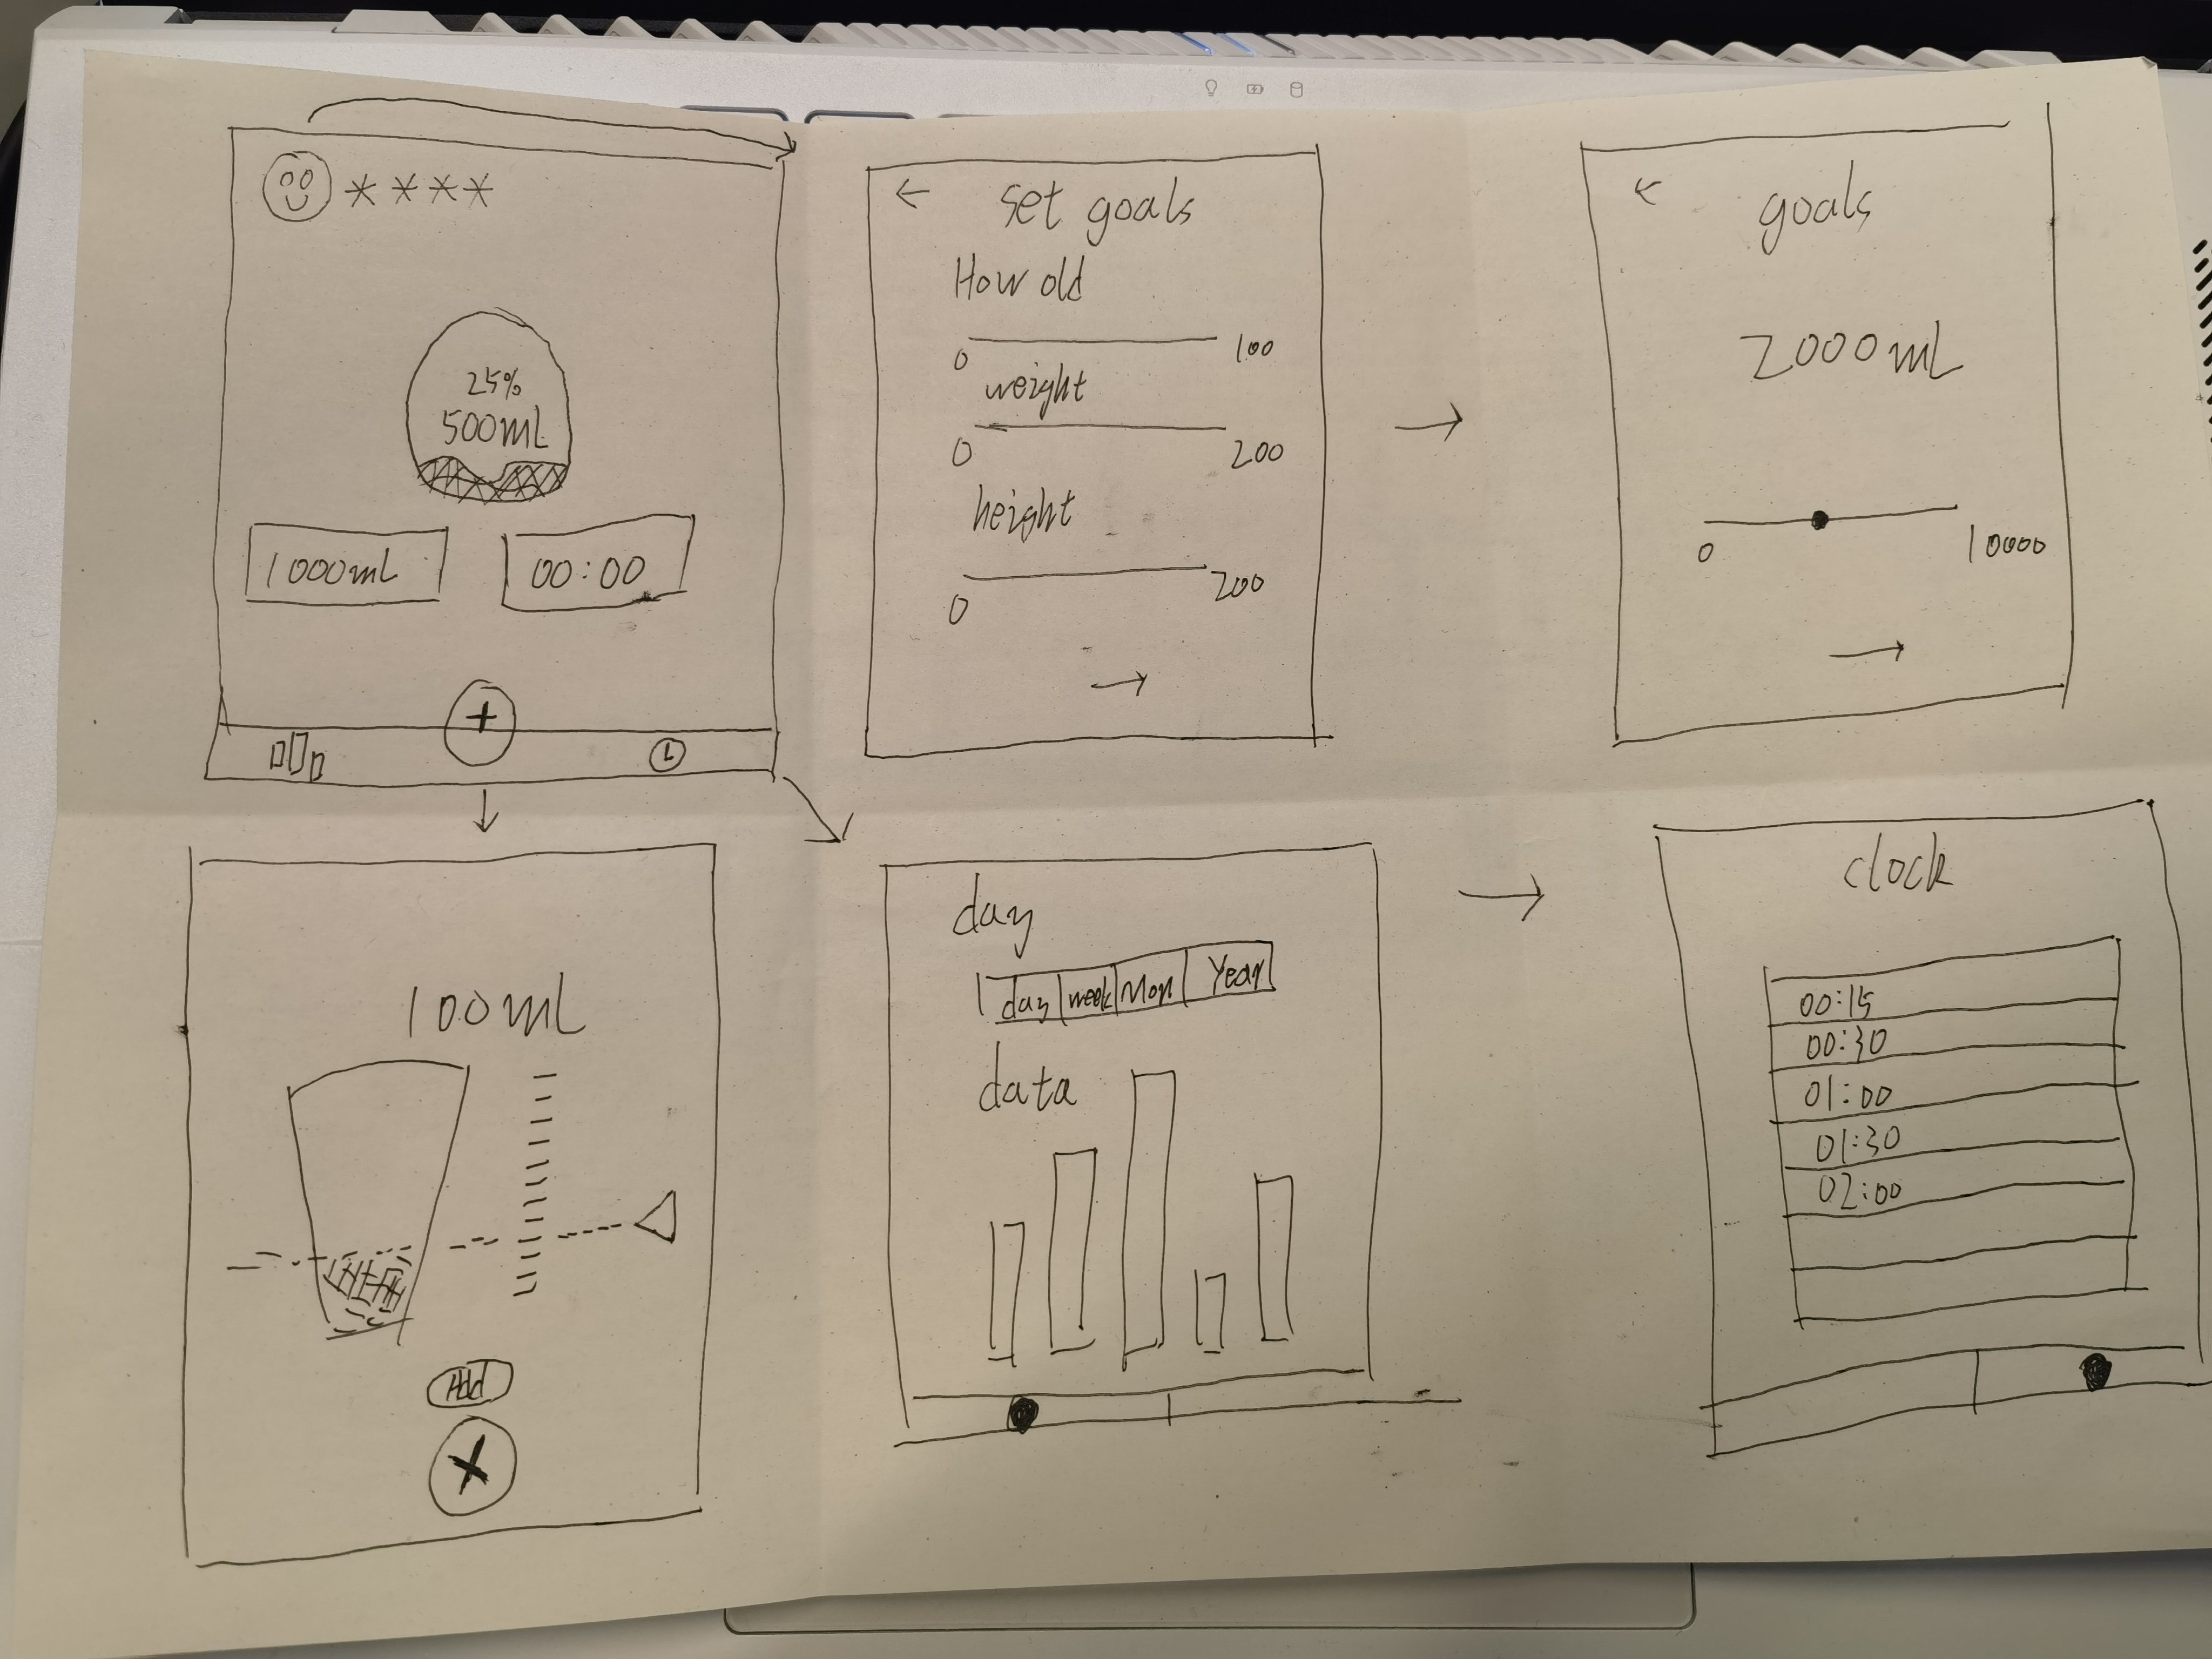 ****
25%
500mL
1000mL
00:00
+
set goals
How old
0 100
weight
0 200
height
0 200
goals
2000mL
0 10000
100mL
Add
X
day
day week Mon Year
data
clock
00:15
00:30
01:00
01:30
02:00